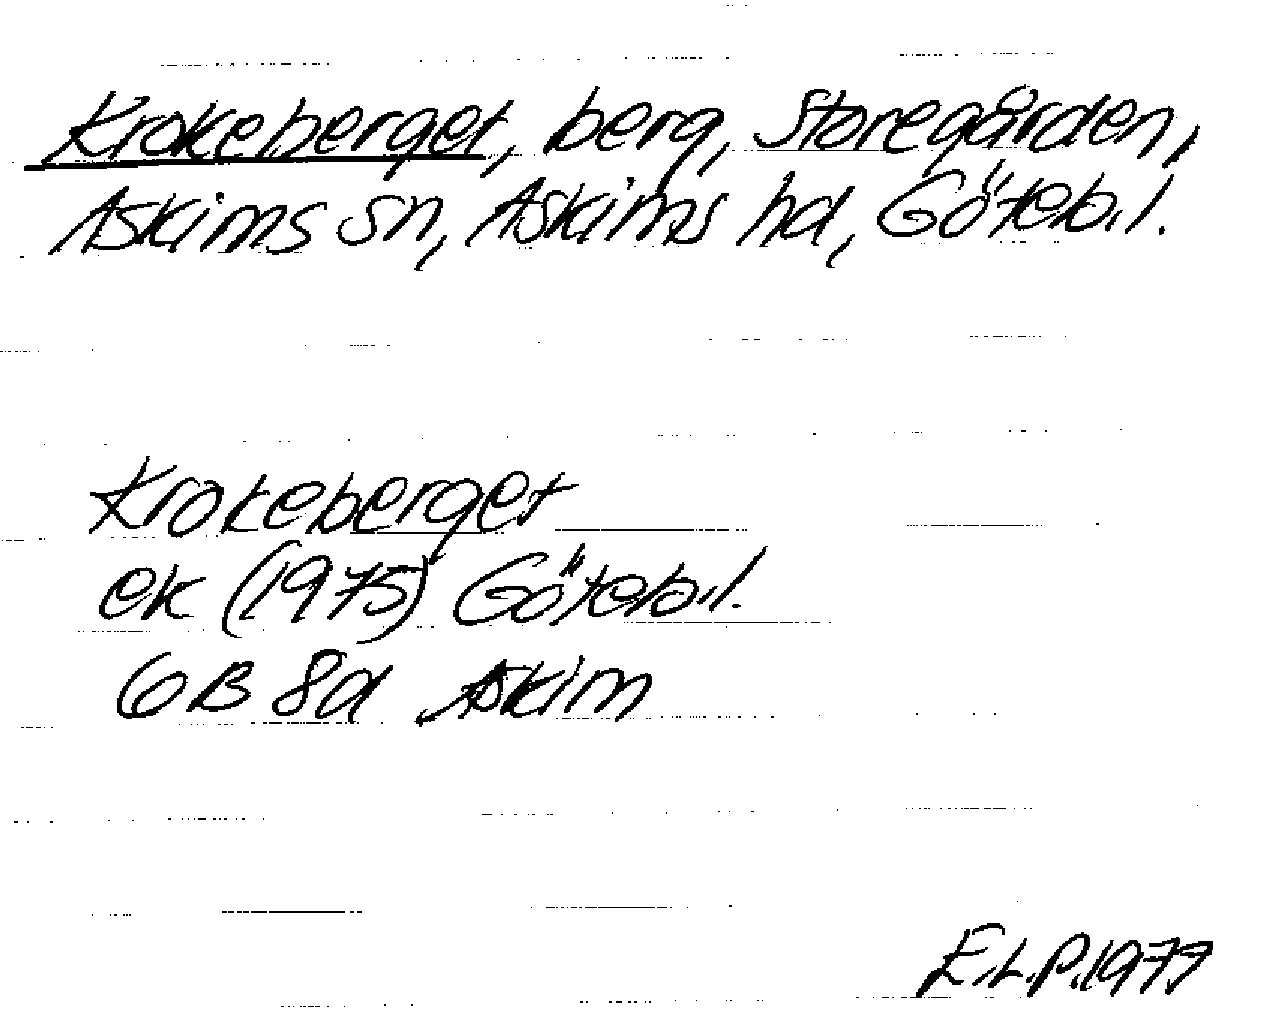 Krokeberget, berg, Storegården,
Askims sn, Askims hd, Göteb.l.
Krokeberget
ek (1975) Göteb.l.
6B 8d Askim
E.L.P. 1977